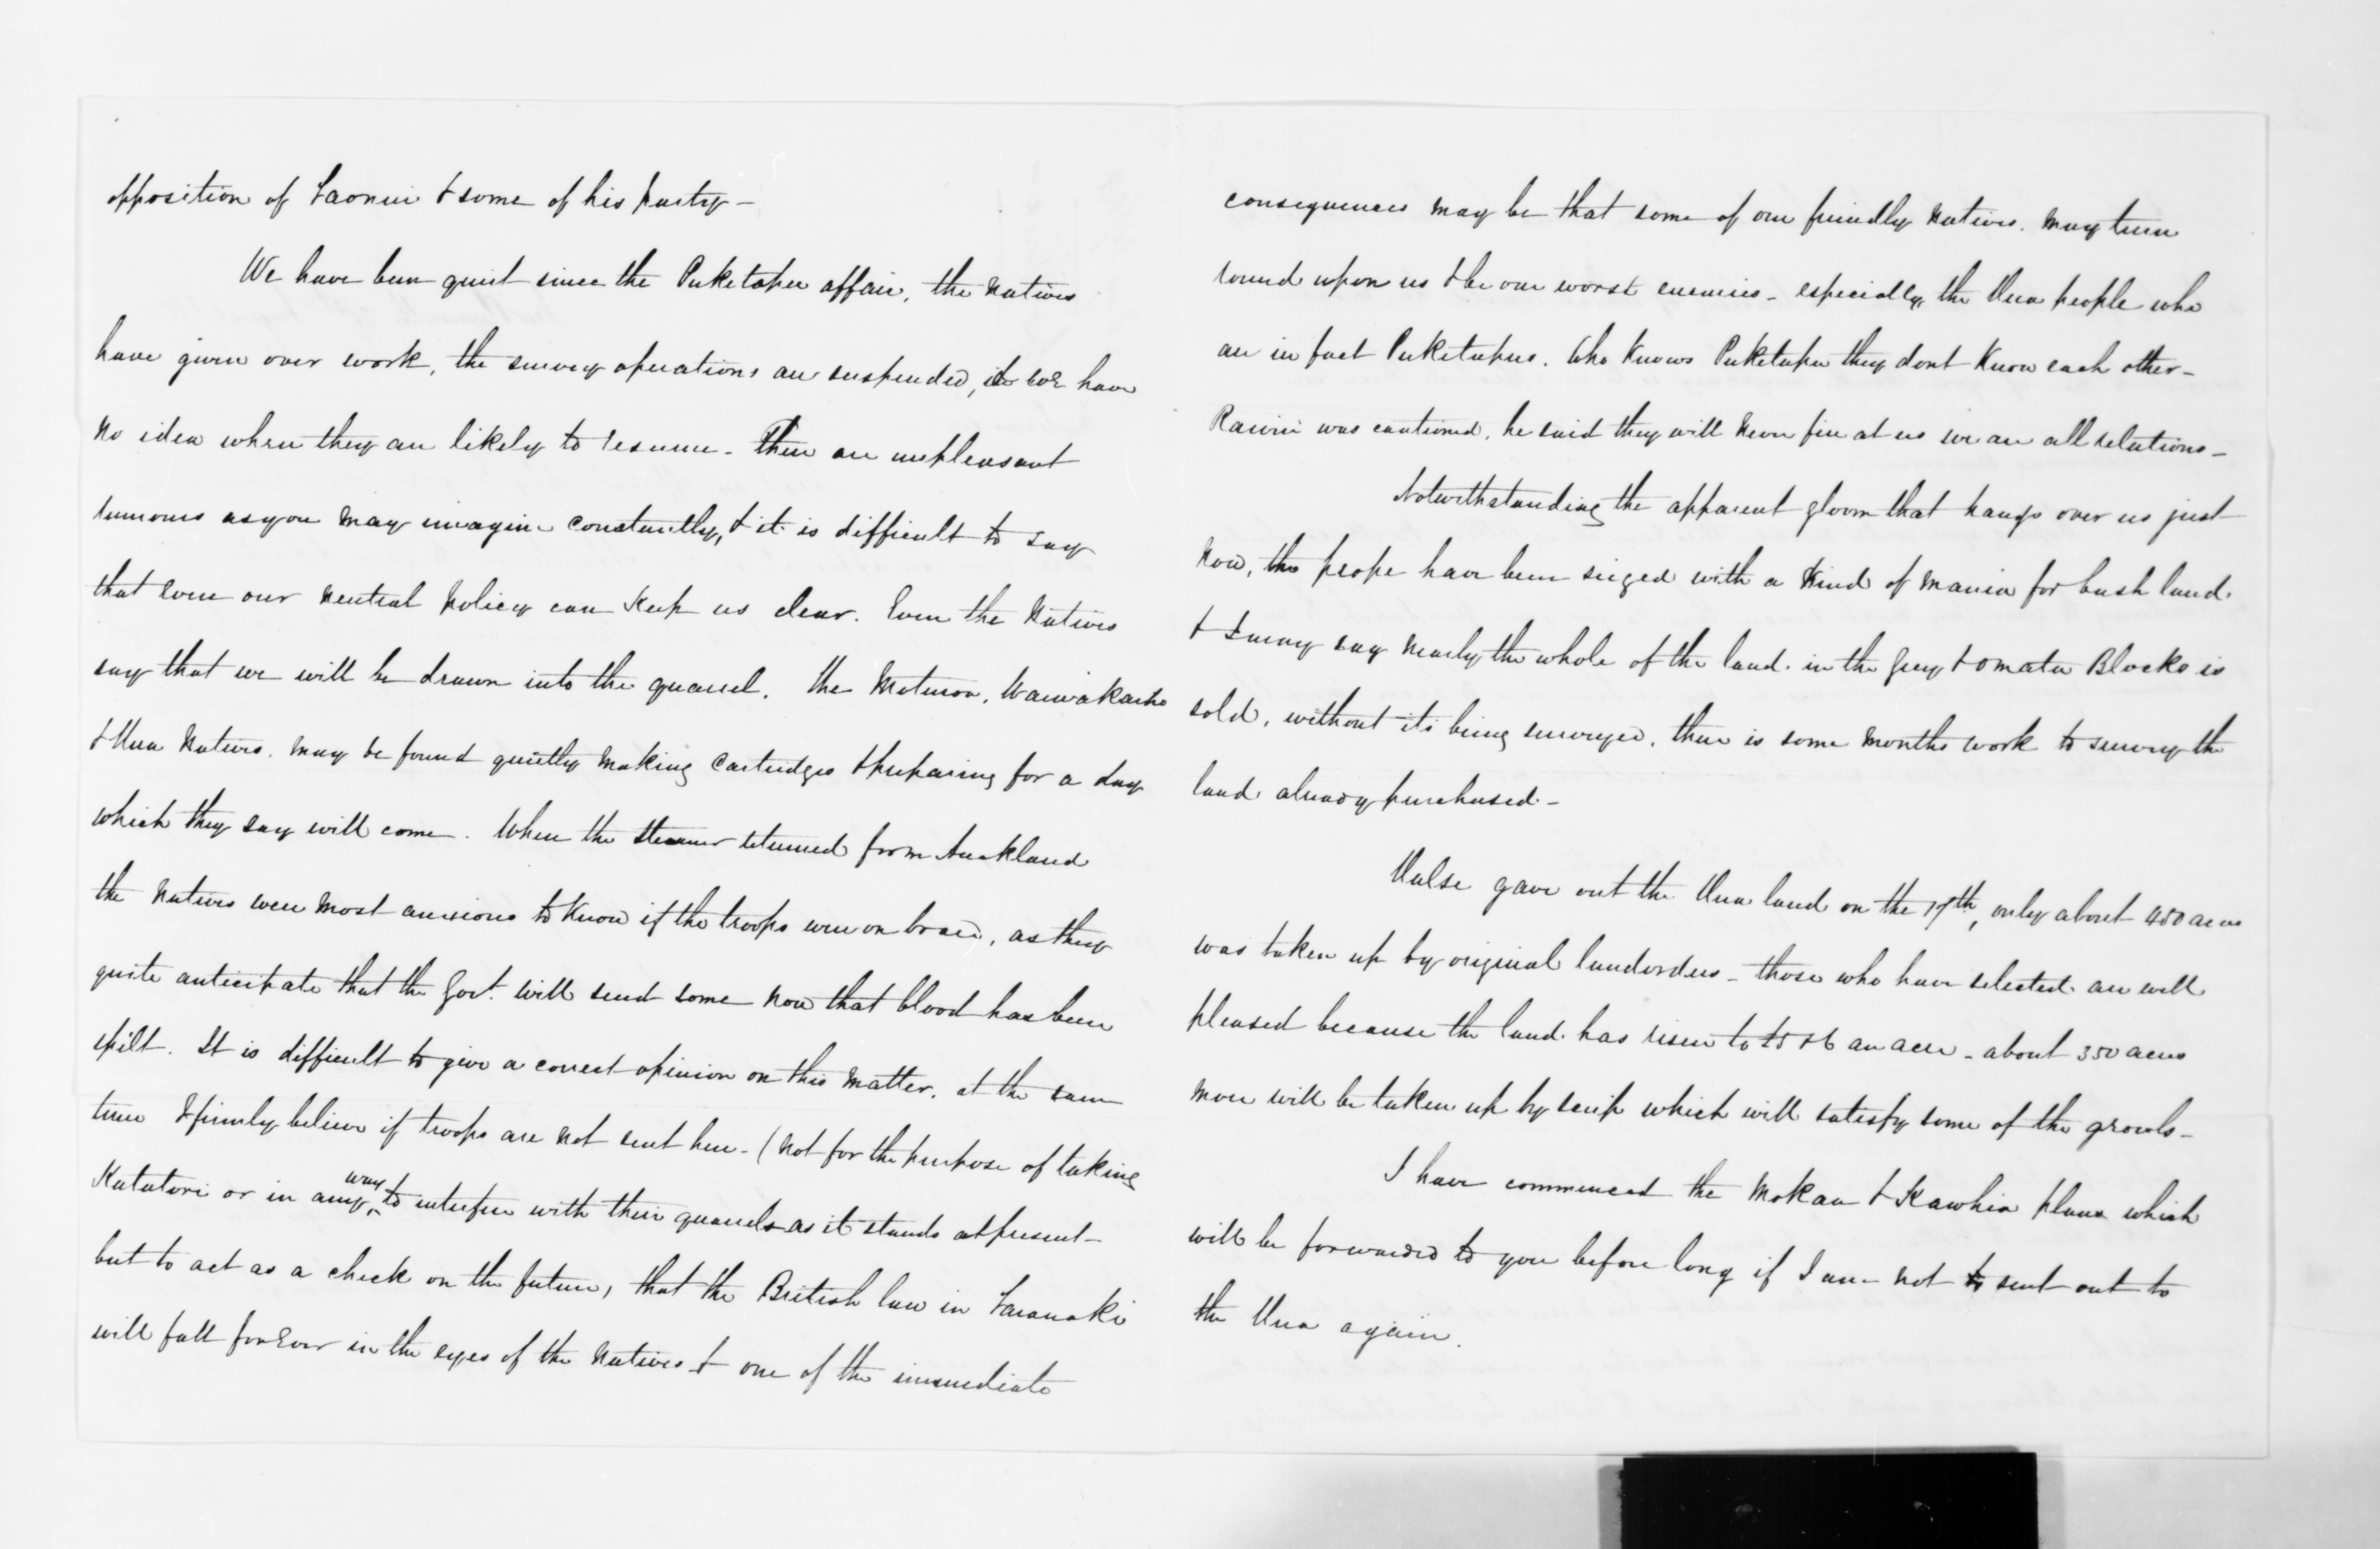 opposition of Taonui & some of his party -
We have been quiet since the Puketapu affair, the Natives
have given over work, the survey operations are suspended, & we have
no idea when they are likely to resume - There are unpleasant
rumours as you may imagine constantly, & it is difficult to say
that even our neutral policy can keep us clear. Even the Natives
say that we will be drawn into the quarrel. The Moturoa, Waiwakaiho
& Hua Natives. may be found quietly making Cartridges & preparing for a day
which they say will come. When the steamer returned from Auckland
the Natives were most anxious to know if the troops were on board, as they
quite anticipate that the Govt. will send some now that blood has been
spilt. It is difficult to give a correct opinion on this matter. at the same
time I firmly believe if troops are not sent here - (not for the purpose of taking
Katatori or in any way to interfere with their quarrels as it stands at present -
but to act as a check on the future, that the British law in Taranaki
will fall for Ever in the eyes of the Natives & one of the immediate
consequences may be that some of our friendly Natives. may turn
round upon us & be our worst enemies - especially, the Hua people who
are in fact Puketapus. Who knows Puketapu they dont know each other -
Rawiri was cautioned, he said they will never fire at us we are all relations -
Notwithstanding the apparent gloom that hangs over us just
now, the peope have been siezed with a kind of mania for bush land.
& I may say nearly the whole of the land. in the Grey & Omata Blocks is
sold, without its being surveyed, there is some months work to survey the
land already purchased -
Halse gave out the Hua land on the 17th, only about 450 acres
was taken up by original landorders - those who have selected are well
pleased because the land has risen to £5 & 6 an acre - about 350 acres
more will be taken up by scrip which will satisfy some of the growls -
I have commenced the Mokau & Kawhia plans which
will be forwarded to you before long if I am not sent out to
the Hua again.